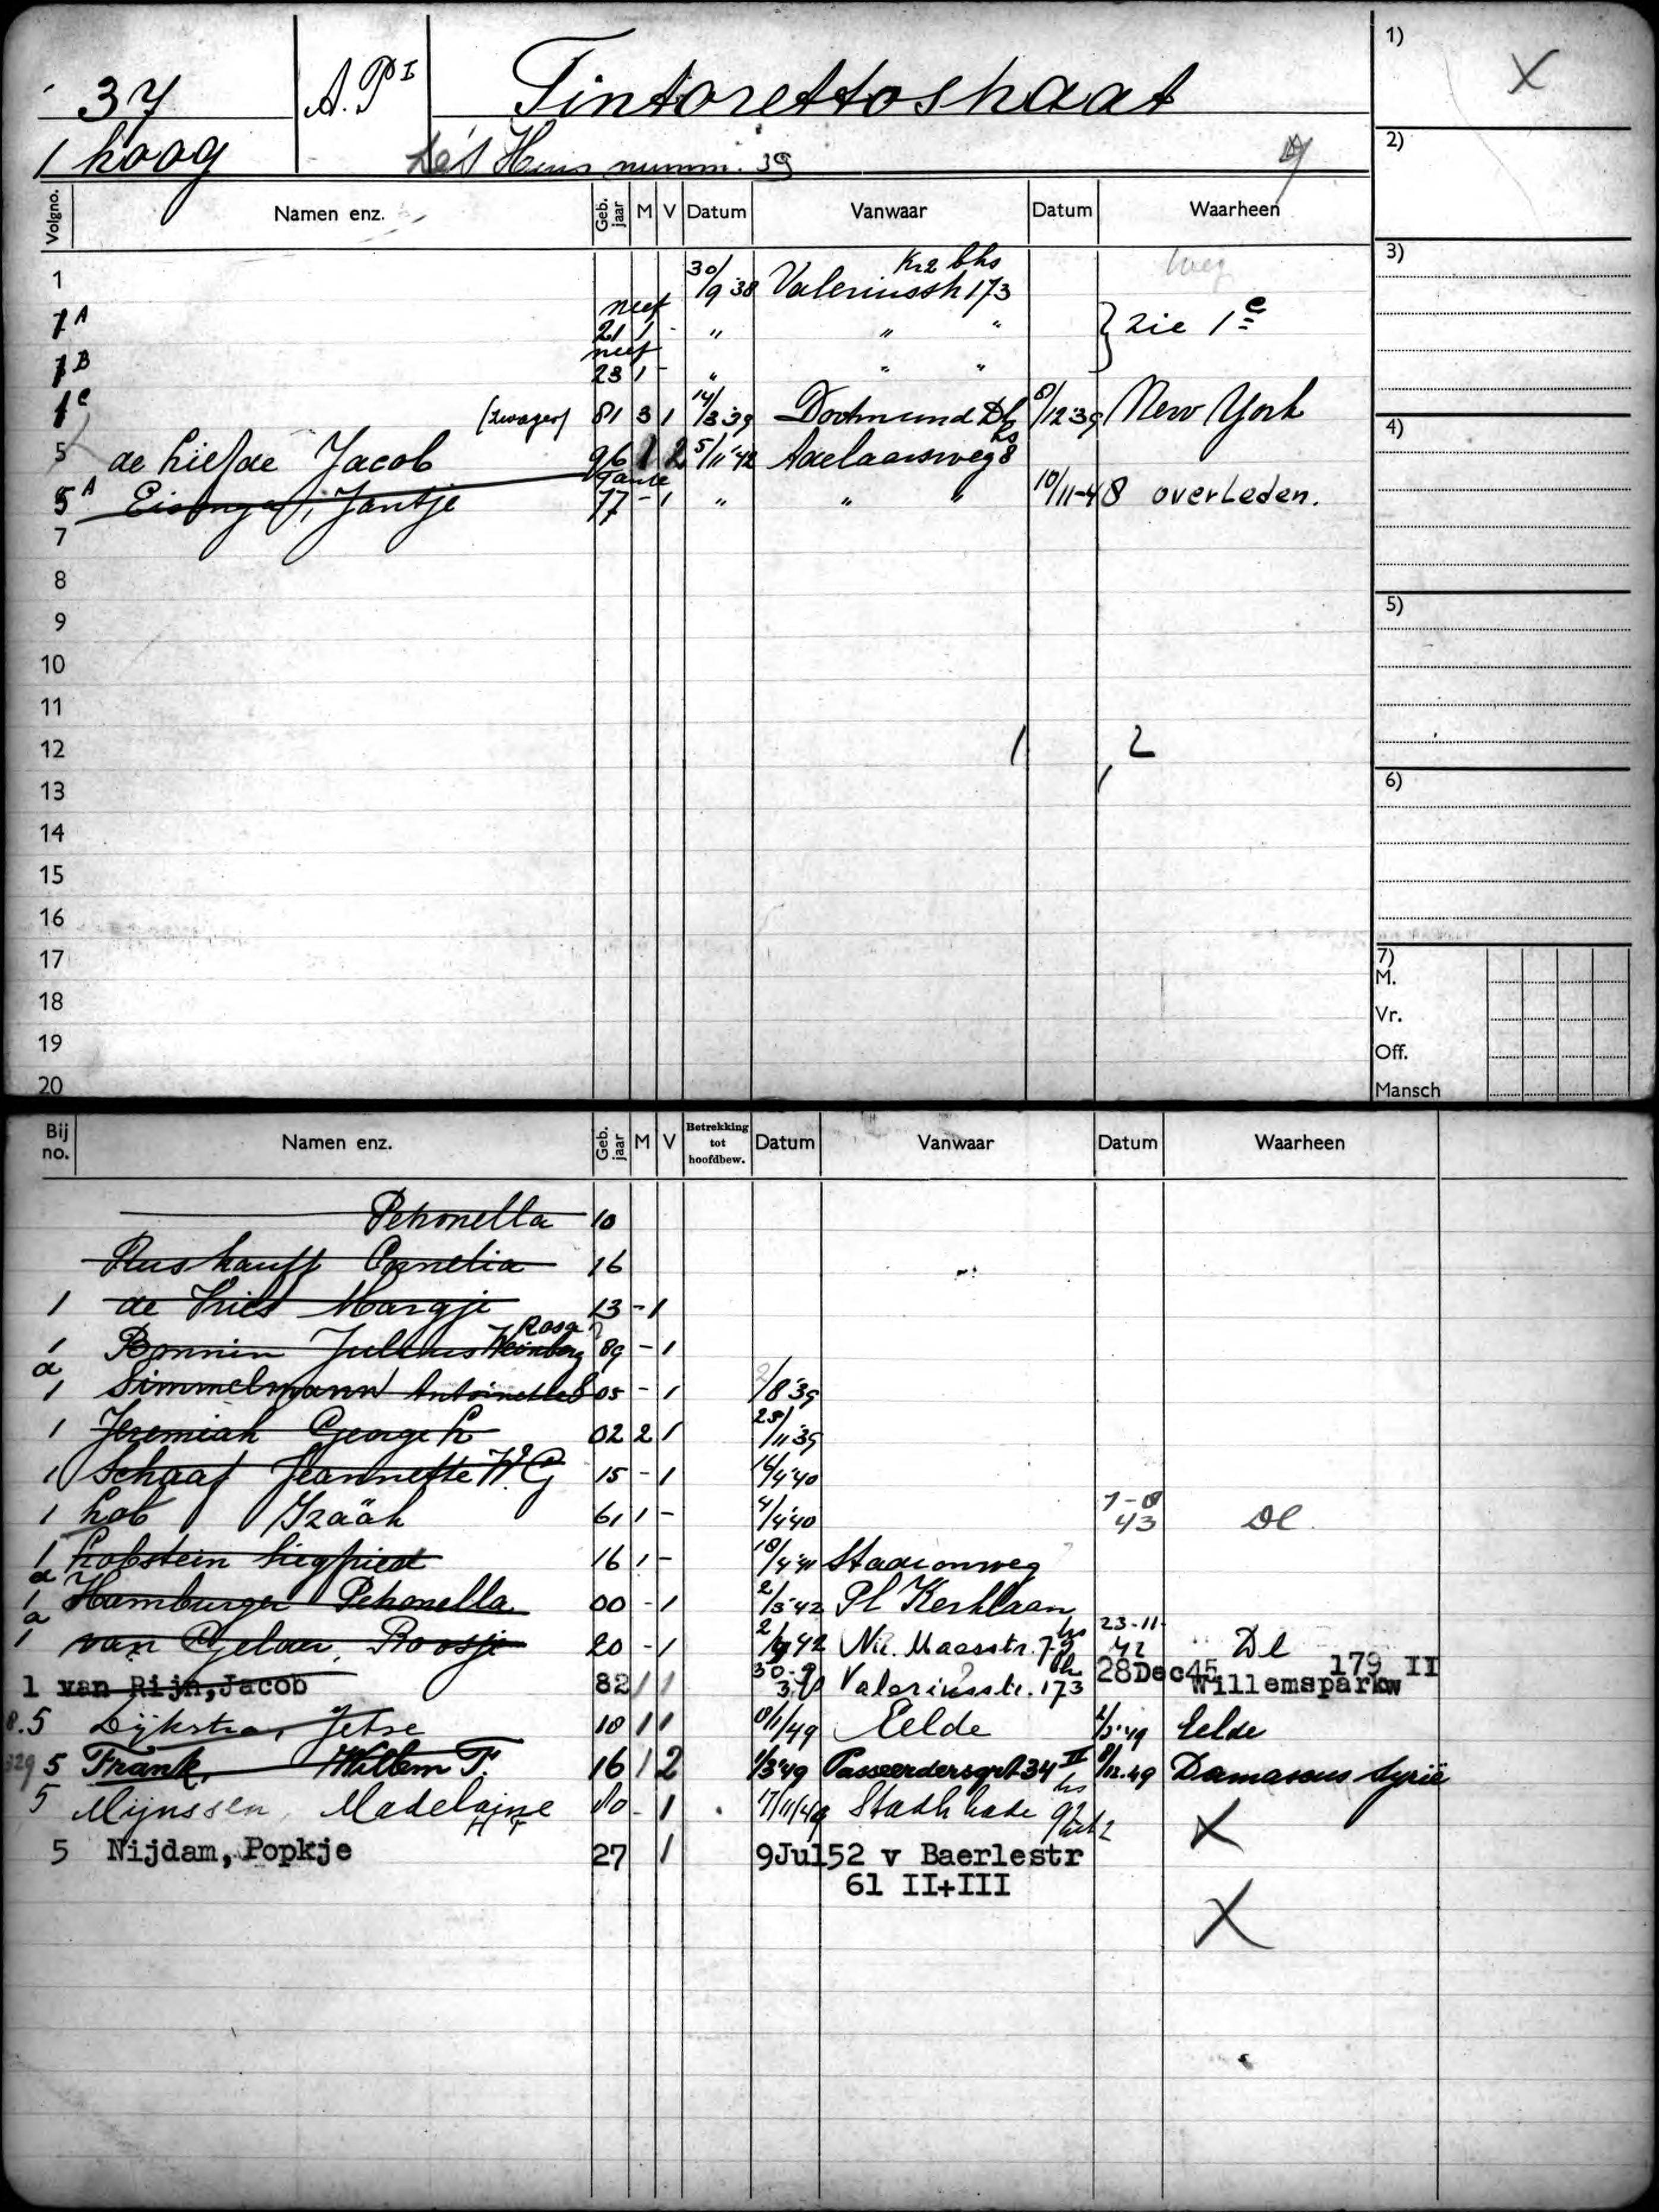 37 A.P I Tintorettostraat
1 hoog Let Huis numm. 39
1)
X
2)
3)
4)
5)
6)
7)
M.
Vr.
Off.
Mansch
Volgno. Namen enz. Geb. jaar M V Datum Vanwaar Datum Waarheen
1 30/9 '38 Valeriusstr 173 weg
neef
1A 21 1 - " " " } zie 1e
neef
1B 23 1 - " " "
1C (zwager) 81 3 1 14/3 '39 Dortmund Dl 8/12 39 New York
hs
5 de Liefde Jacob 96 1 2 5/11 '42 Adelaarsweg 8
Tante
5A Eisinga, Jantje 77 - 1 " " " 10/11-48 overleden.
7
8
9
10
11
12 1 2
13
14
15
16
17
18
19
20
Bij no. Namen enz. Geb. jaar M V Betrekking tot hoofdbew. Datum Vanwaar Datum Waarheen
Petronella 10
Cornelia 16
1 de Vries Margje 13 - 1
Rosa
1 Bonnin Julius Weinberg 89 - 1
a
1 Simmelmann Antoinette 05 - 1 2/8 '39
1 Jeremiah George L 02 2 1 25/11 '39
1 Schaaf Jeannette W. G 15 - 1 16/4 '40
1 Lob Izaäk 61 1 - 4/4 '40 7-8 43 Dl
1 Lobstein Siegfried 16 1 - 18/4 '41 Stadionweg
a
1 Hamburger Petronella 00 - 1 2/5 '42 Pl Kerklaan
a
1 van Gelder, Roosje 20 - 1 2/9 42 Nic. Maesstr. 79 hs 23-11-42 Dl
1 van Rijn, Jacob 82 1 1 30-9 38 Valeriusstr. 173 28Dec45 Willemsparkw 179 II
8.5 Dijkstra, Jetse 10 1 1 8/1/49 Eelde 2/3 '49 Eelde
329 5 Frank, Willem F. 16 1 2 1/3 '49 Passeerdersgrt 34 II 8/12.49 Damascus Syrië
5 Mijnssen, Madelaine 80 - 1 17/11/49 Stadh kade 92 hs X
5 Nijdam, Popkje 27 1 9Jul52 v Baerlestr
61 II+III
X